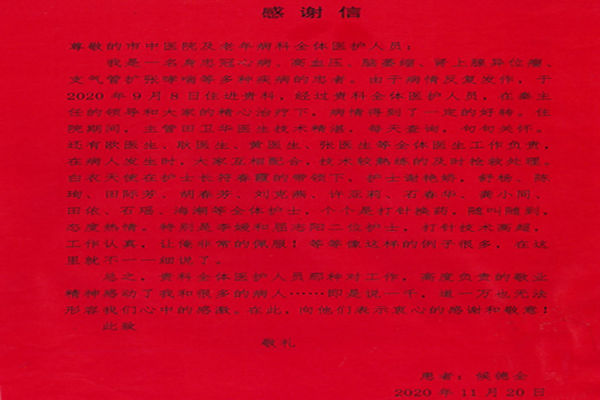 感谢信
尊敬的市中医院及老年病科全体医护人员：
我是一名身患冠心病、高血压、脑萎缩、肾上腺异位瘤、
支气管扩张哮喘等多种疾病的患者。由于病情反复发作，于
2020年9月8日住进贵科，经过贵科全体医护人员，在秦主
任的领导和大家的精心治疗下，病情得到了一定的好转。住
院期间，主管田卫华医生技术精湛，每天查询，句句关怀。
还有欧医生、耿医生、黄医生、张医生等全体医生工作负责，
在病人发生时，大家互相配合，技术较熟练的及时抢救处理。
白衣天使在护士长符春霞的带领下，护士谢艳娇，舒杨、陈
琦、田际芳、胡春芳、刘克燕、许亚莉、石春华、龚小间、
田依、石瑶、海潮等全体护士，个个是打针换药，随叫随到，
态度热情。特别是李媛和屈志阳二位护士，打针技术高超，
工作认真，让俺非常的佩服！等等像这样的例子很多，在这
里就不一一细说了。
总之，贵科全体医护人员那种对工作，高度负责的敬业
精神感动了我和很多的病人……即是说一千，道一万也无法
形容我们心中的感激。在此，向他们表示衷心的感谢和敬意！
此致
敬礼
患者：候德全
2020年11月20日